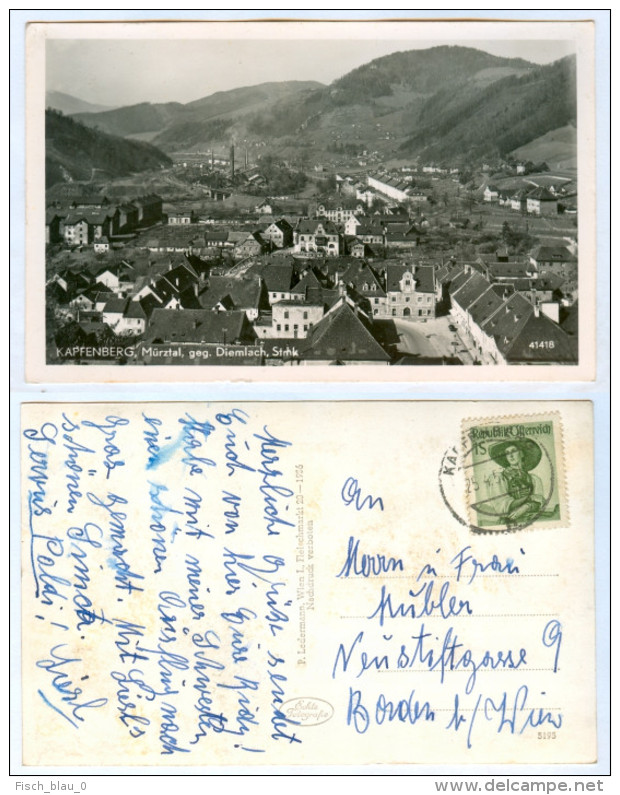 KAPFENBERG, Mürztal, geg. Diemlach, Stmk
41418
Herzliche Grüße sendet
Euch von hier Eure
Habe mit meiner Schwester
einen schönen Ausflug nach
Graz gemacht. Mit
schönen
Servus Poldi!
P. Ledermann, Wien I, Fleischmarkt 20 — 1956
Nachdruck verboten
Echte
Fotografie
Republik Österreich
1S
An
Herrn u Frau
Hübler
Neustiftgasse 9
Baden b/ Wien
5195
Fisch_blau_0
www.delcampe.net